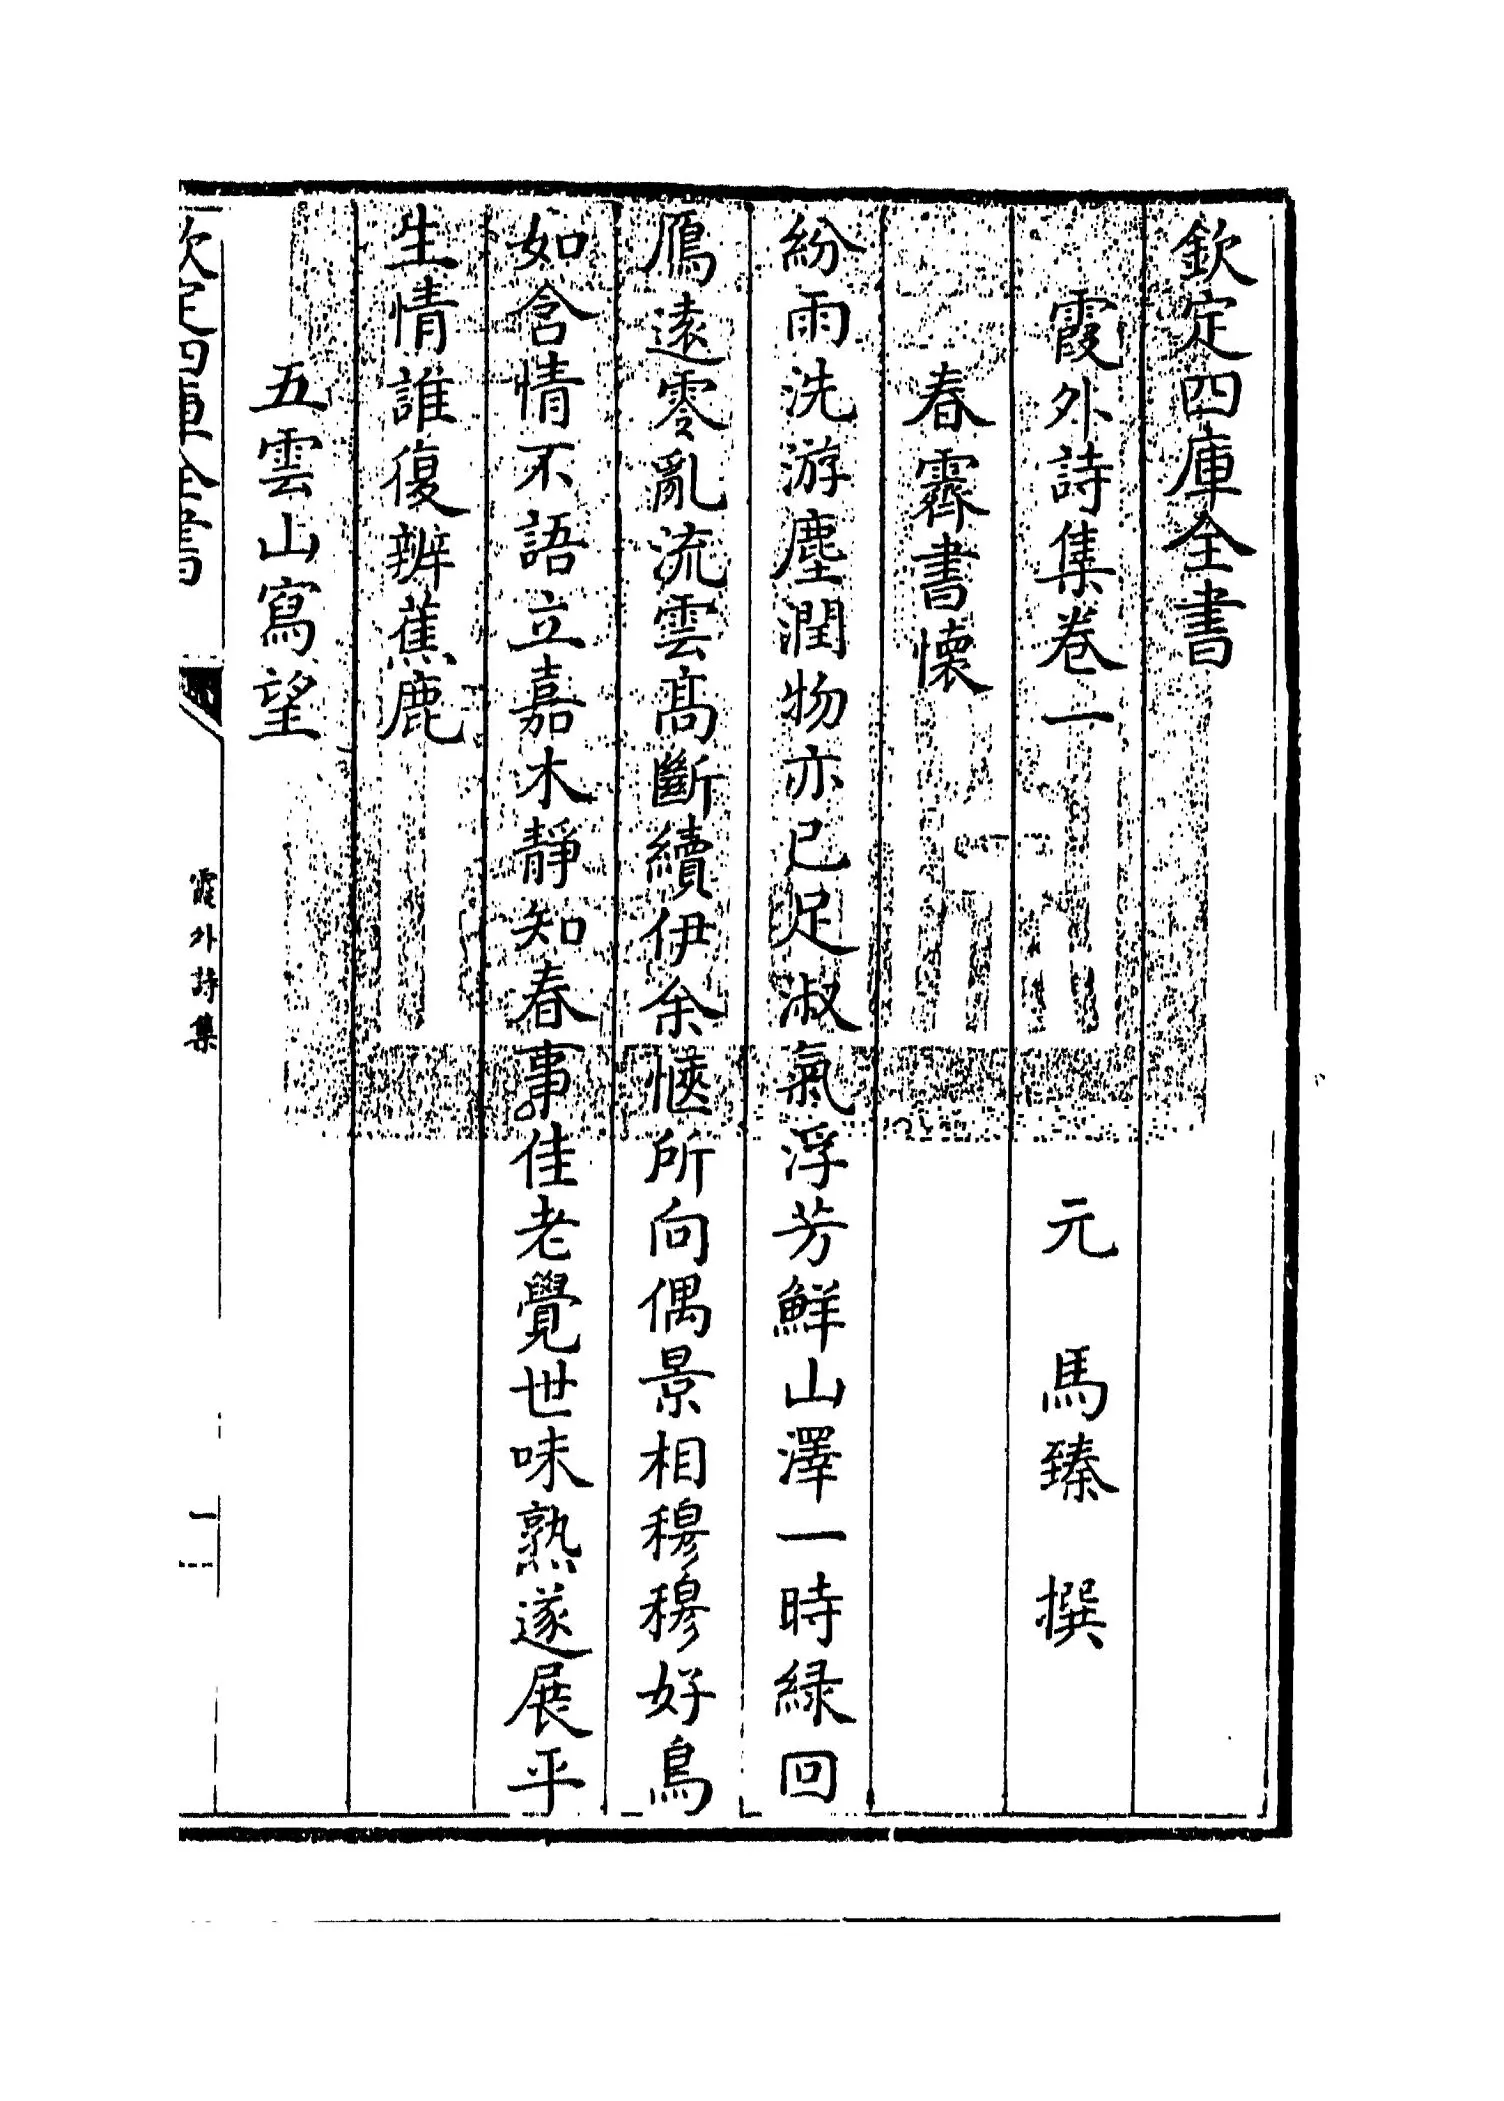 欽定四庫全書
霞外詩集卷一　元　馬臻　撰
春霽書懷
紛雨洗游塵潤物亦已足淑氣浮芳鮮山澤一時緑回
鴈遠零亂流雲髙斷續伊余愜所向偶景相穆穆好鳥
如含情不語立嘉木靜知春事佳老覺世味熟遂展平
生情誰復辨蕉鹿
五雲山寫望
欽定四庫全書
霞外詩集
一